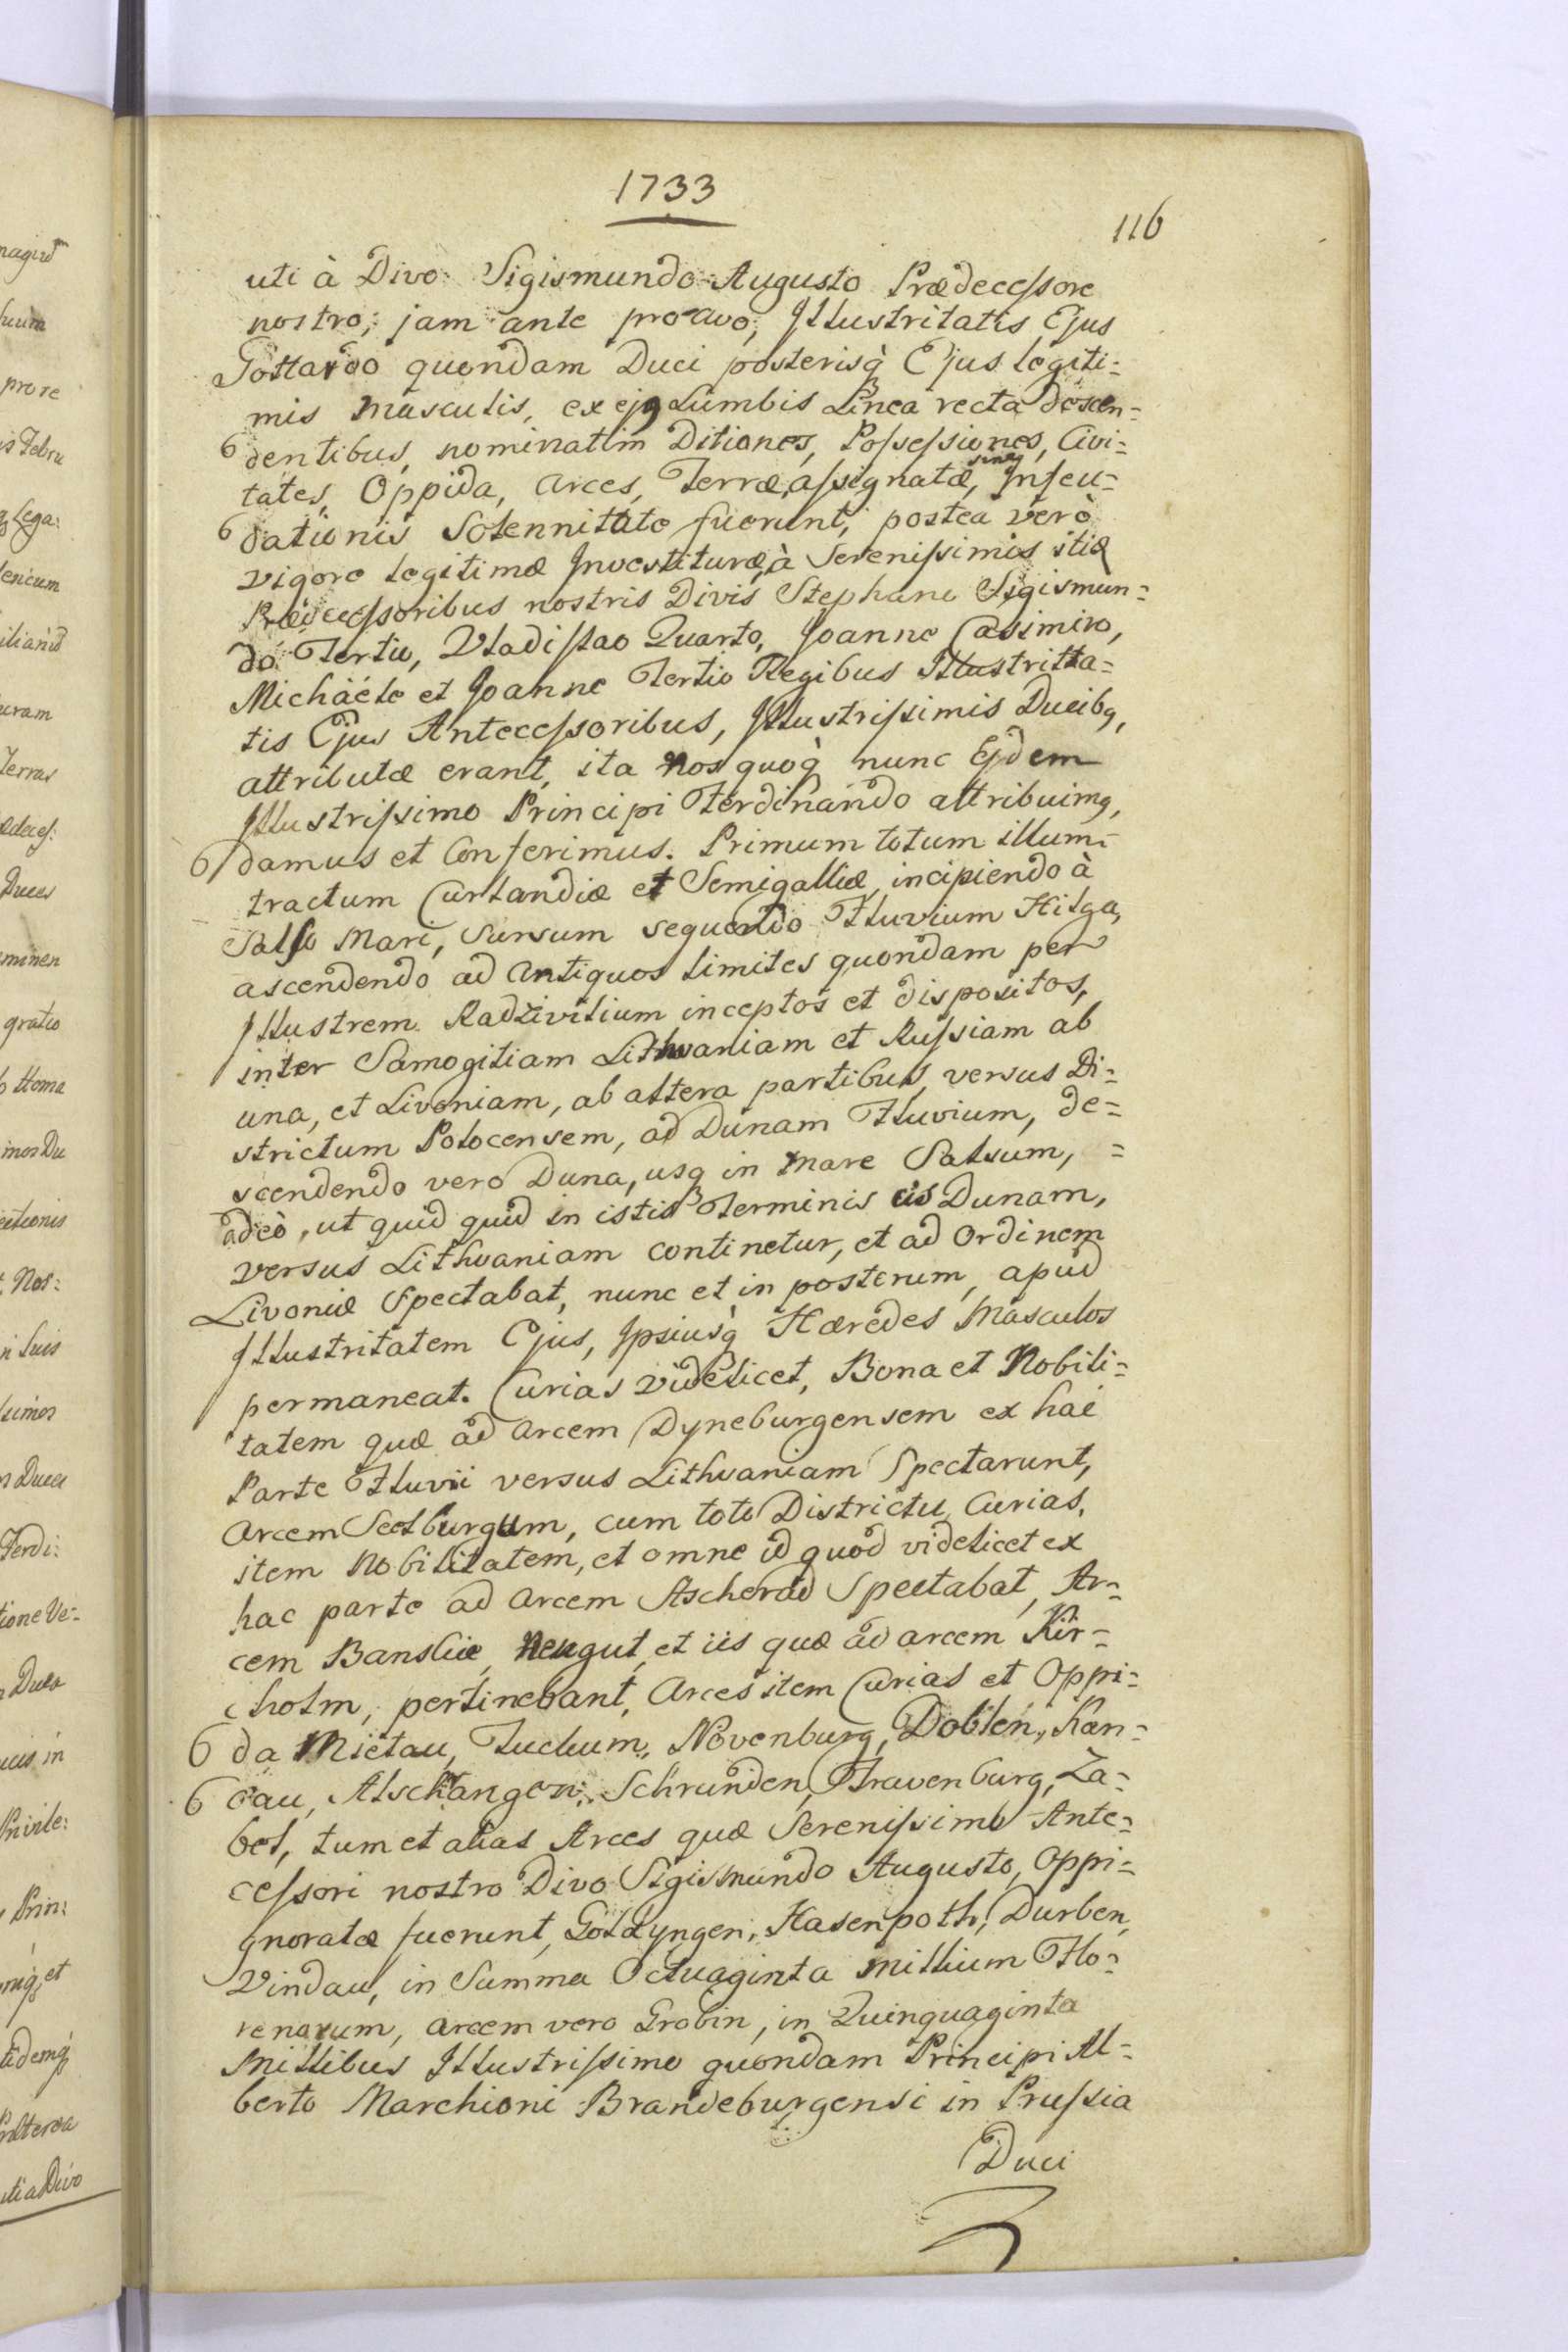 1733
116
uti à Divo Sigismundo Augusto Prædecessore
nostro, jam ante proavo, Illustritatis Ejus
Gottardo quondam Duci posterisq̀ Ejus legiti=
mis masculis, ex ejq Lumbis Linea recta descen=
dentibus, nominatim Ditiones, Possessiones, Civi=
tates, Oppida, Arces, Terræ, assignatæ, sine Infeu=
dationis Solennitate fuerunt, postea verò
vigore legitimæ Investituræ, à Serenissimis
Prædecessoribus nostris Divis Stephano Sigismun=
do Tertio, Vladislao Quarto, Joanne Casimiro,
Michaéle et Joanne Tertio Regibus Illustritta=
tis Ejus Antecessoribus, Illustrissimis Ducibq,
attributæ erant, ita nos quoq̀ nunc Ejdem
Illustrissimo Principi Ferdinando attribuimq,
damus et Conferimus. Primum totum illum=
tractum Curlandiæ et Semigalliæ, incipiendo à
Salso Mari, Sursum sequendo Fluvium Hilga,
ascendendo ad Antiquos limites quondam per
Illustrem Radziwilium inceptos et dispositos,
inter Samogitiam Lithvaniam et Russiam ab
una, et Livoniam, ab altera partibus, versus Di=
strictum Polocensem, ad Dunam Fluvium, de=
scendendo vero Duna, usq in mare Salsum, =
adeò, ut quid quid in istis Terminis cis Dunam,
versus Lithvaniam continetur, et ad Ordinem
Livoniæ Spectabat, nunc et in posterum, apud
Illustritatem Ejus, Ipsiusq̀ Hæredes Masculos
permaneat. Curias videlicet, Bona et Nobili=
tatem quæ ad Arcem Dyneburgensem ex hac
Parte Fluvii versus Lithvaniam Spectarunt,
Arcem Seelburgum, cum toto Districtu, Curias,
item Nobilitatem, et omne id quod videlicet ex
hac parte ad Arcem Ascherad Spectabat, Ar=
cem Bauskie, Neugut, et iis quæ ad arcem Kir=
cholm, pertinebant, Arces item Curias et Oppi=
da Mietau, Tuckum, Novenburg, Doblen, Kan=
dau, Alschangen, Schrunden, Fravenburg, Za=
bel, tum et alias Arces quæ Serenissimo Ante=
cessori nostro Divo Sigismundo Augusto, Oppi=
gnoratæ fuerunt, Goldyngen, Hasenpoth, Durben,
Vindau, in Summa Octuaginta Millium Flo=
renorum, arcem vero Grobin, in Quinquaginta
Millibus Illustrissimo quondam Principi Al=
berto Marchioni Brandeburgensi in Prussia
Duci